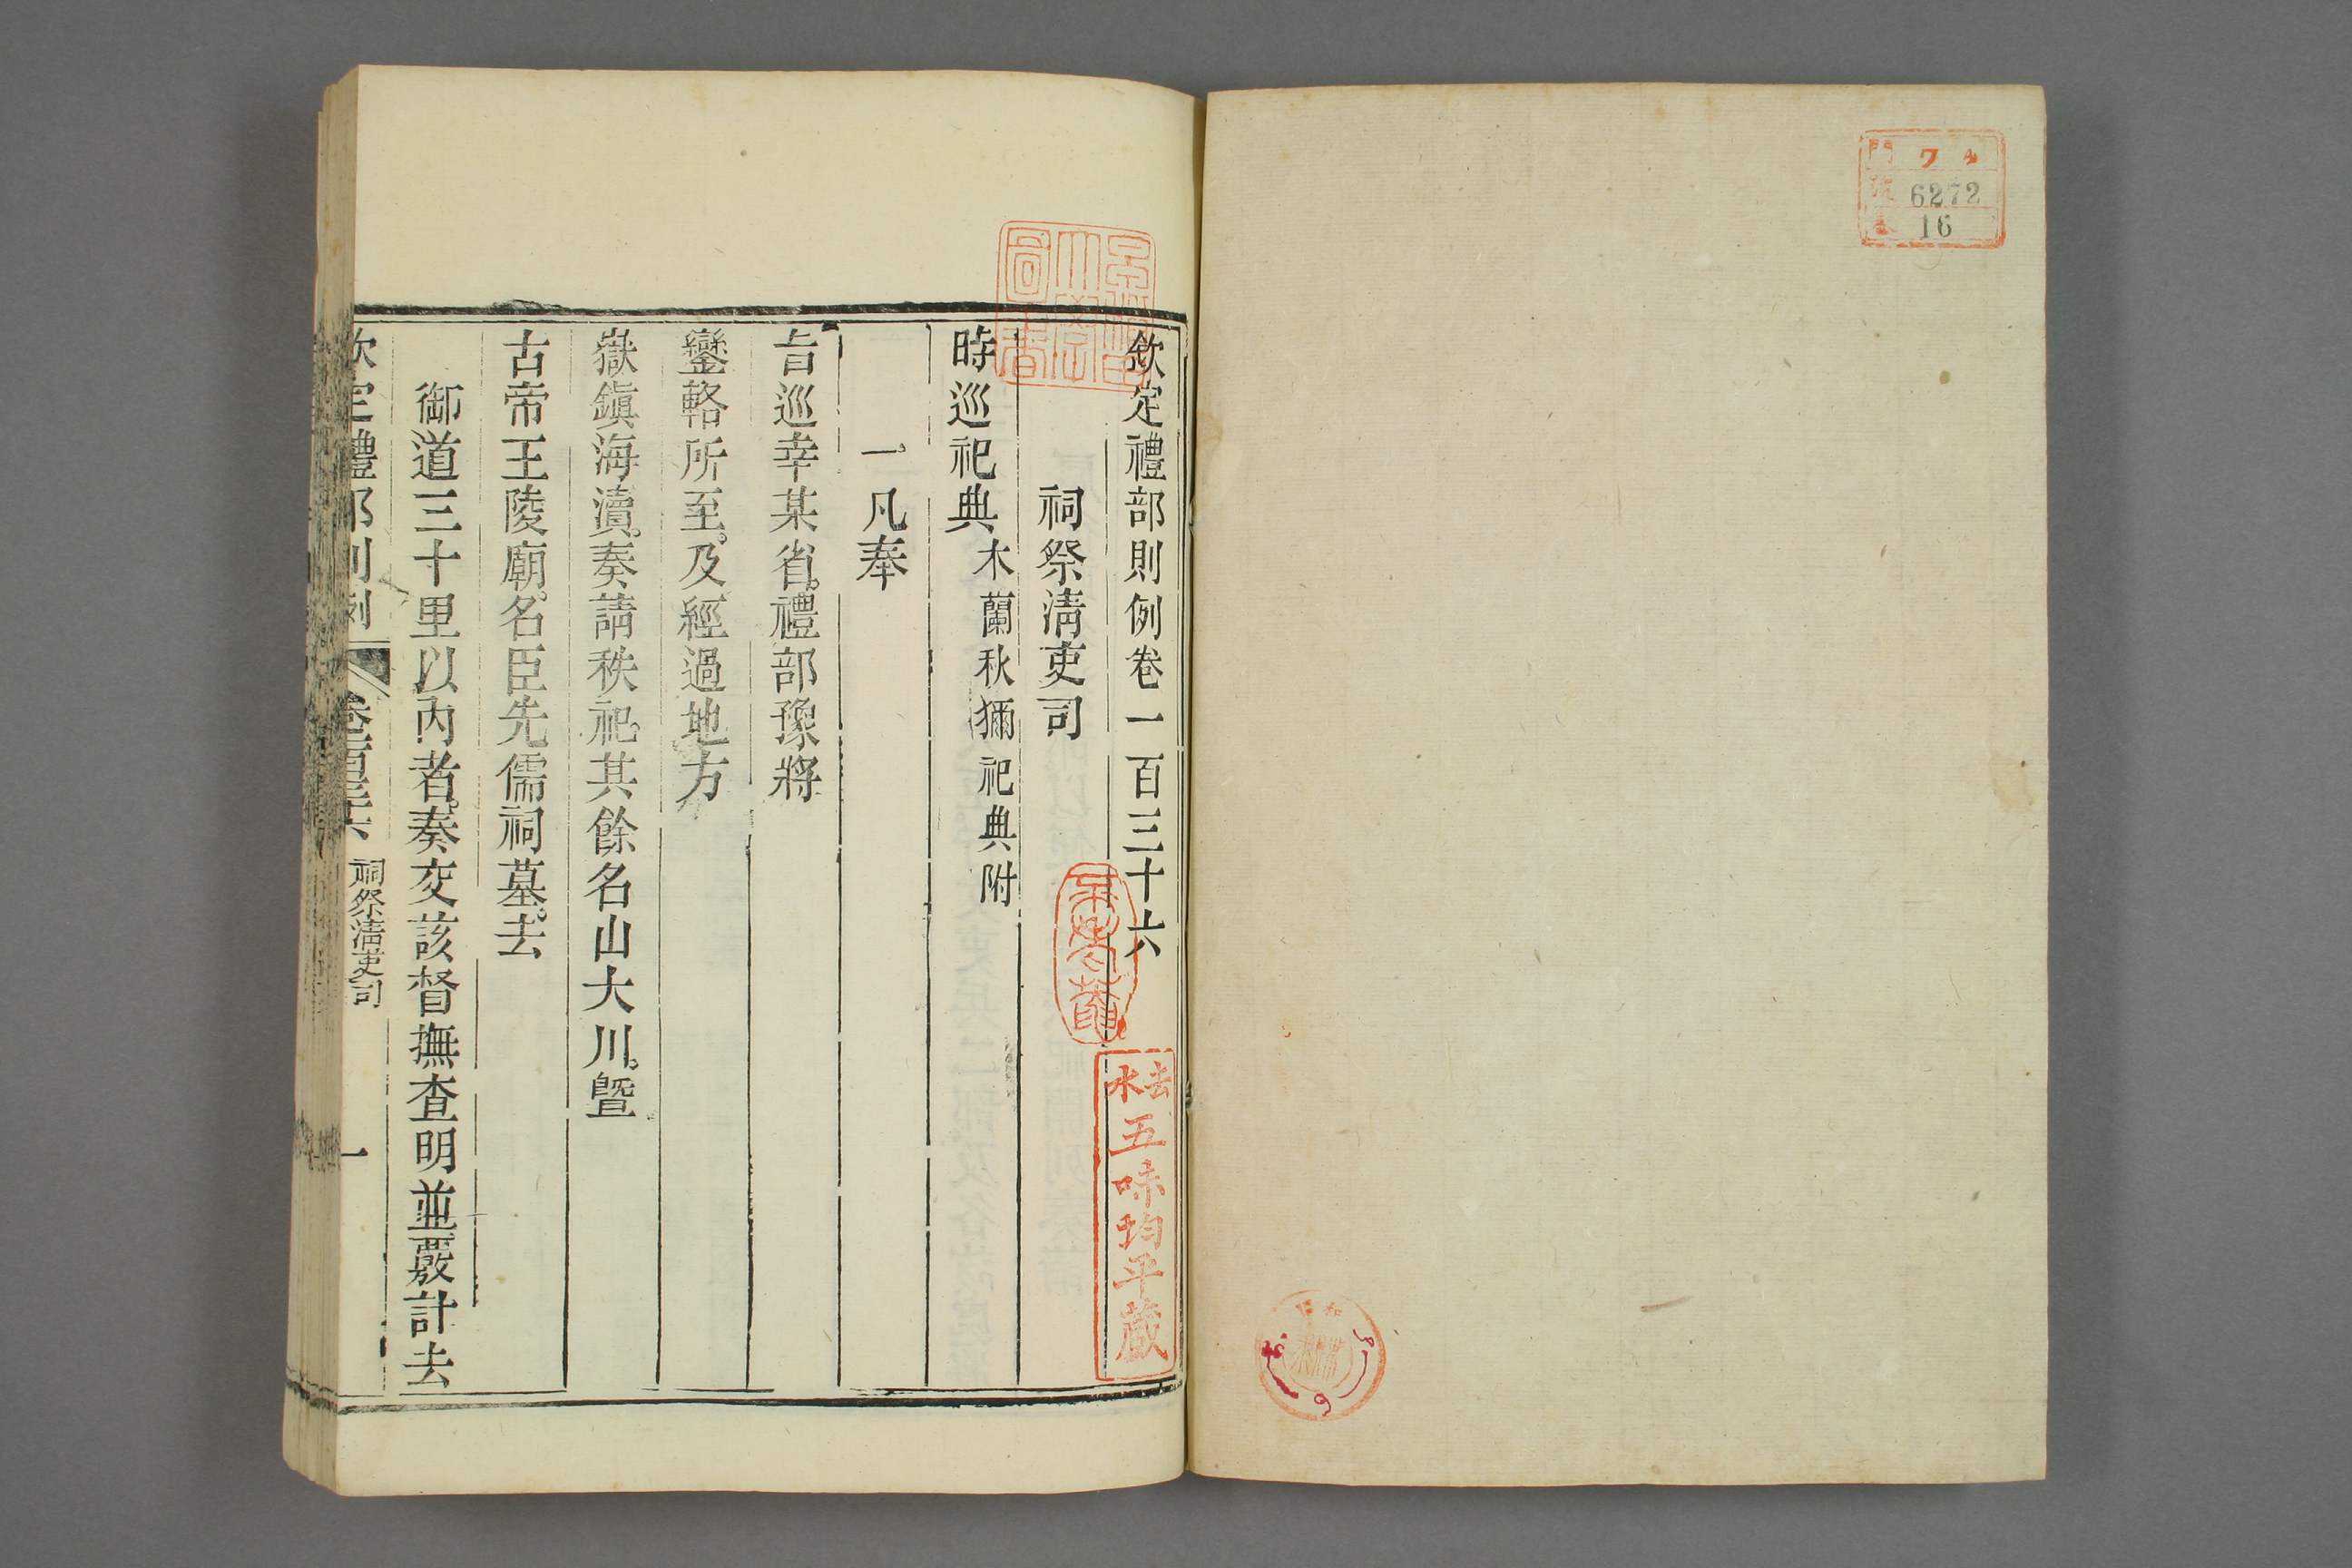 門 ワ 4
號 6272
巻 16
欽定禮部則例卷一百三十六
祠祭淸吏司
時巡祀典木蘭秋獮祀典附
一凡奉
旨巡幸某省。禮部豫將
鑾輅所至。及經過地方
嶽鎭海瀆。奏請秩祀。其餘名山大川。曁
古帝王陵廟。名臣先儒祠墓。去
御道三十里以內者。奏交該督撫查明並覈計去
欽定禮部則例
卷一百三十六 祠祭淸吏司
一
去水
五味均平蔵